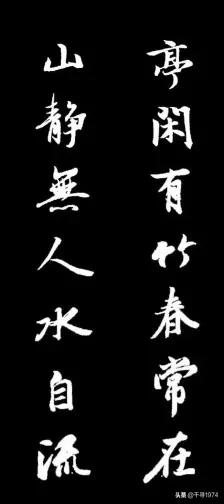 亭閑有竹春常在
山静無人水自流
头条@千寻1974